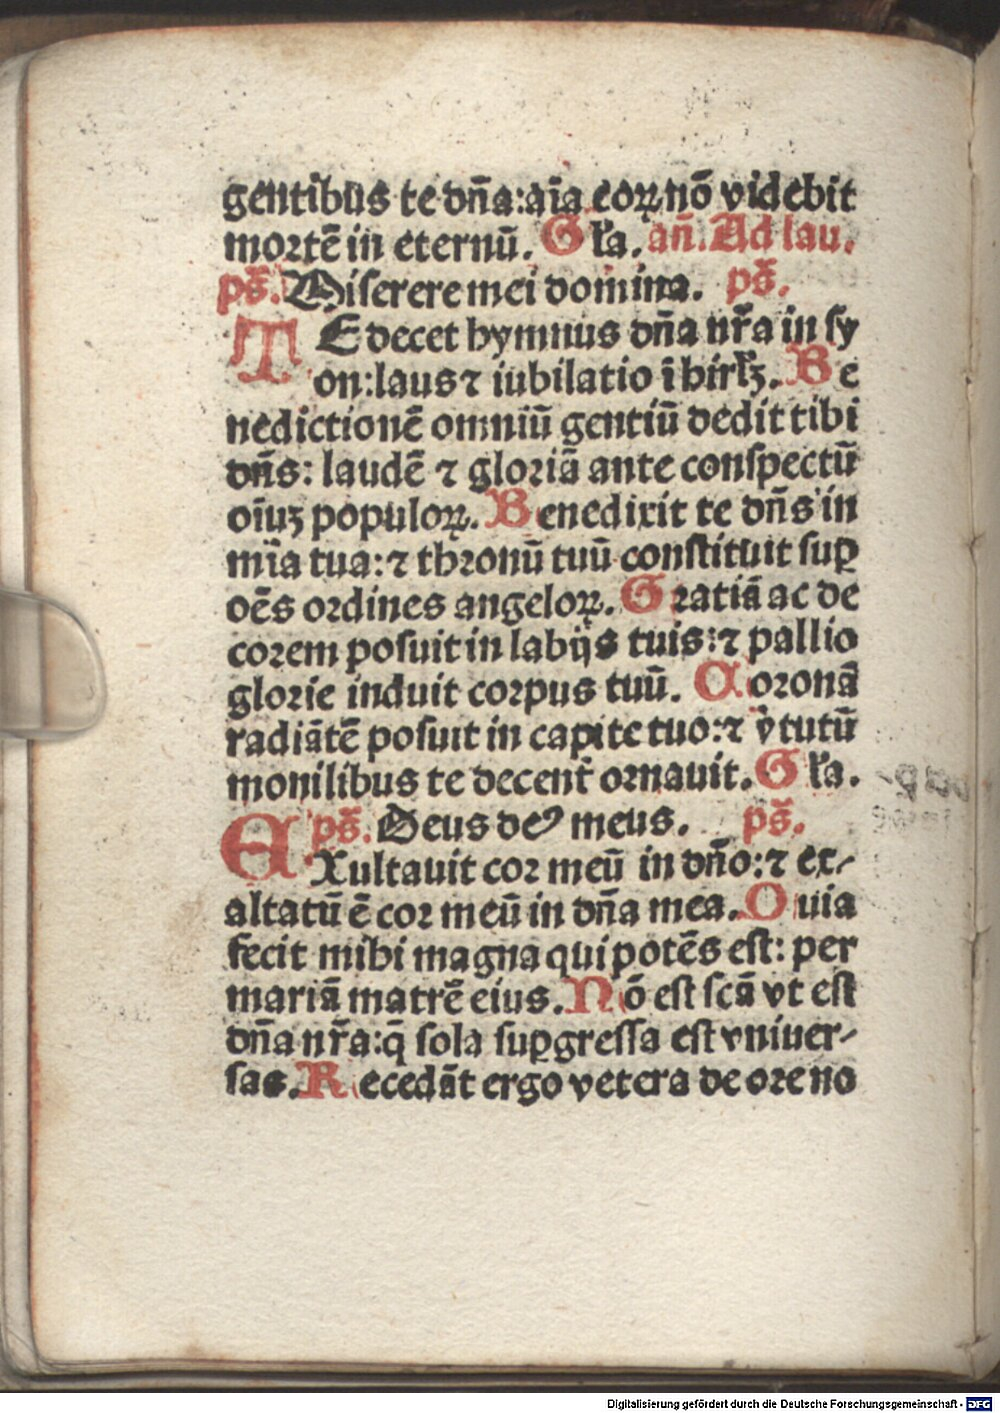 gentibus te dn̄a:aīa eoꝝ nō videbit
mortē in eternū. Gl'a. an̄. Ad lau.
ps̄. Miserere mei domina. ps̄.
TE decet hymnus dn̄a nr̄a in sy
on:laus ⁊ iubilatio ī hirlꝫ. Be
nedictionē omniū gentiū dedit tibi
dn̄s: laudē ⁊ gloriā ante conspectū
oīuꝫ populoꝝ. Benedixit te dn̄s in
mīa tua: ⁊ thronū tuū constituit suꝑ
oēs ordines angeloꝝ. Gratiā ac de
corem posuit in labijs tuis: ⁊ pallio
glorie induit corpus tuū. Coronā
radiātē posuit in capite tuo: ⁊ v̓tutū
monilibus te decent̓ ornauit. Gl'a.
ps̄. Deus deꝰ meus. ps̄.
EXultauit cor meū in dn̄o: ⁊ ex-
altatū ē cor meū in dn̄a mea. Quia
fecit mihi magna qui potēs est: per
mariā matrē eius. Nō est scā vt est
dn̄a nr̄a: q̄ sola suꝑgressa est vniuer-
sas. Recedāt ergo vetera de ore no
Digitalisierung gefördert durch die Deutsche Forschungsgemeinschaft - DFG